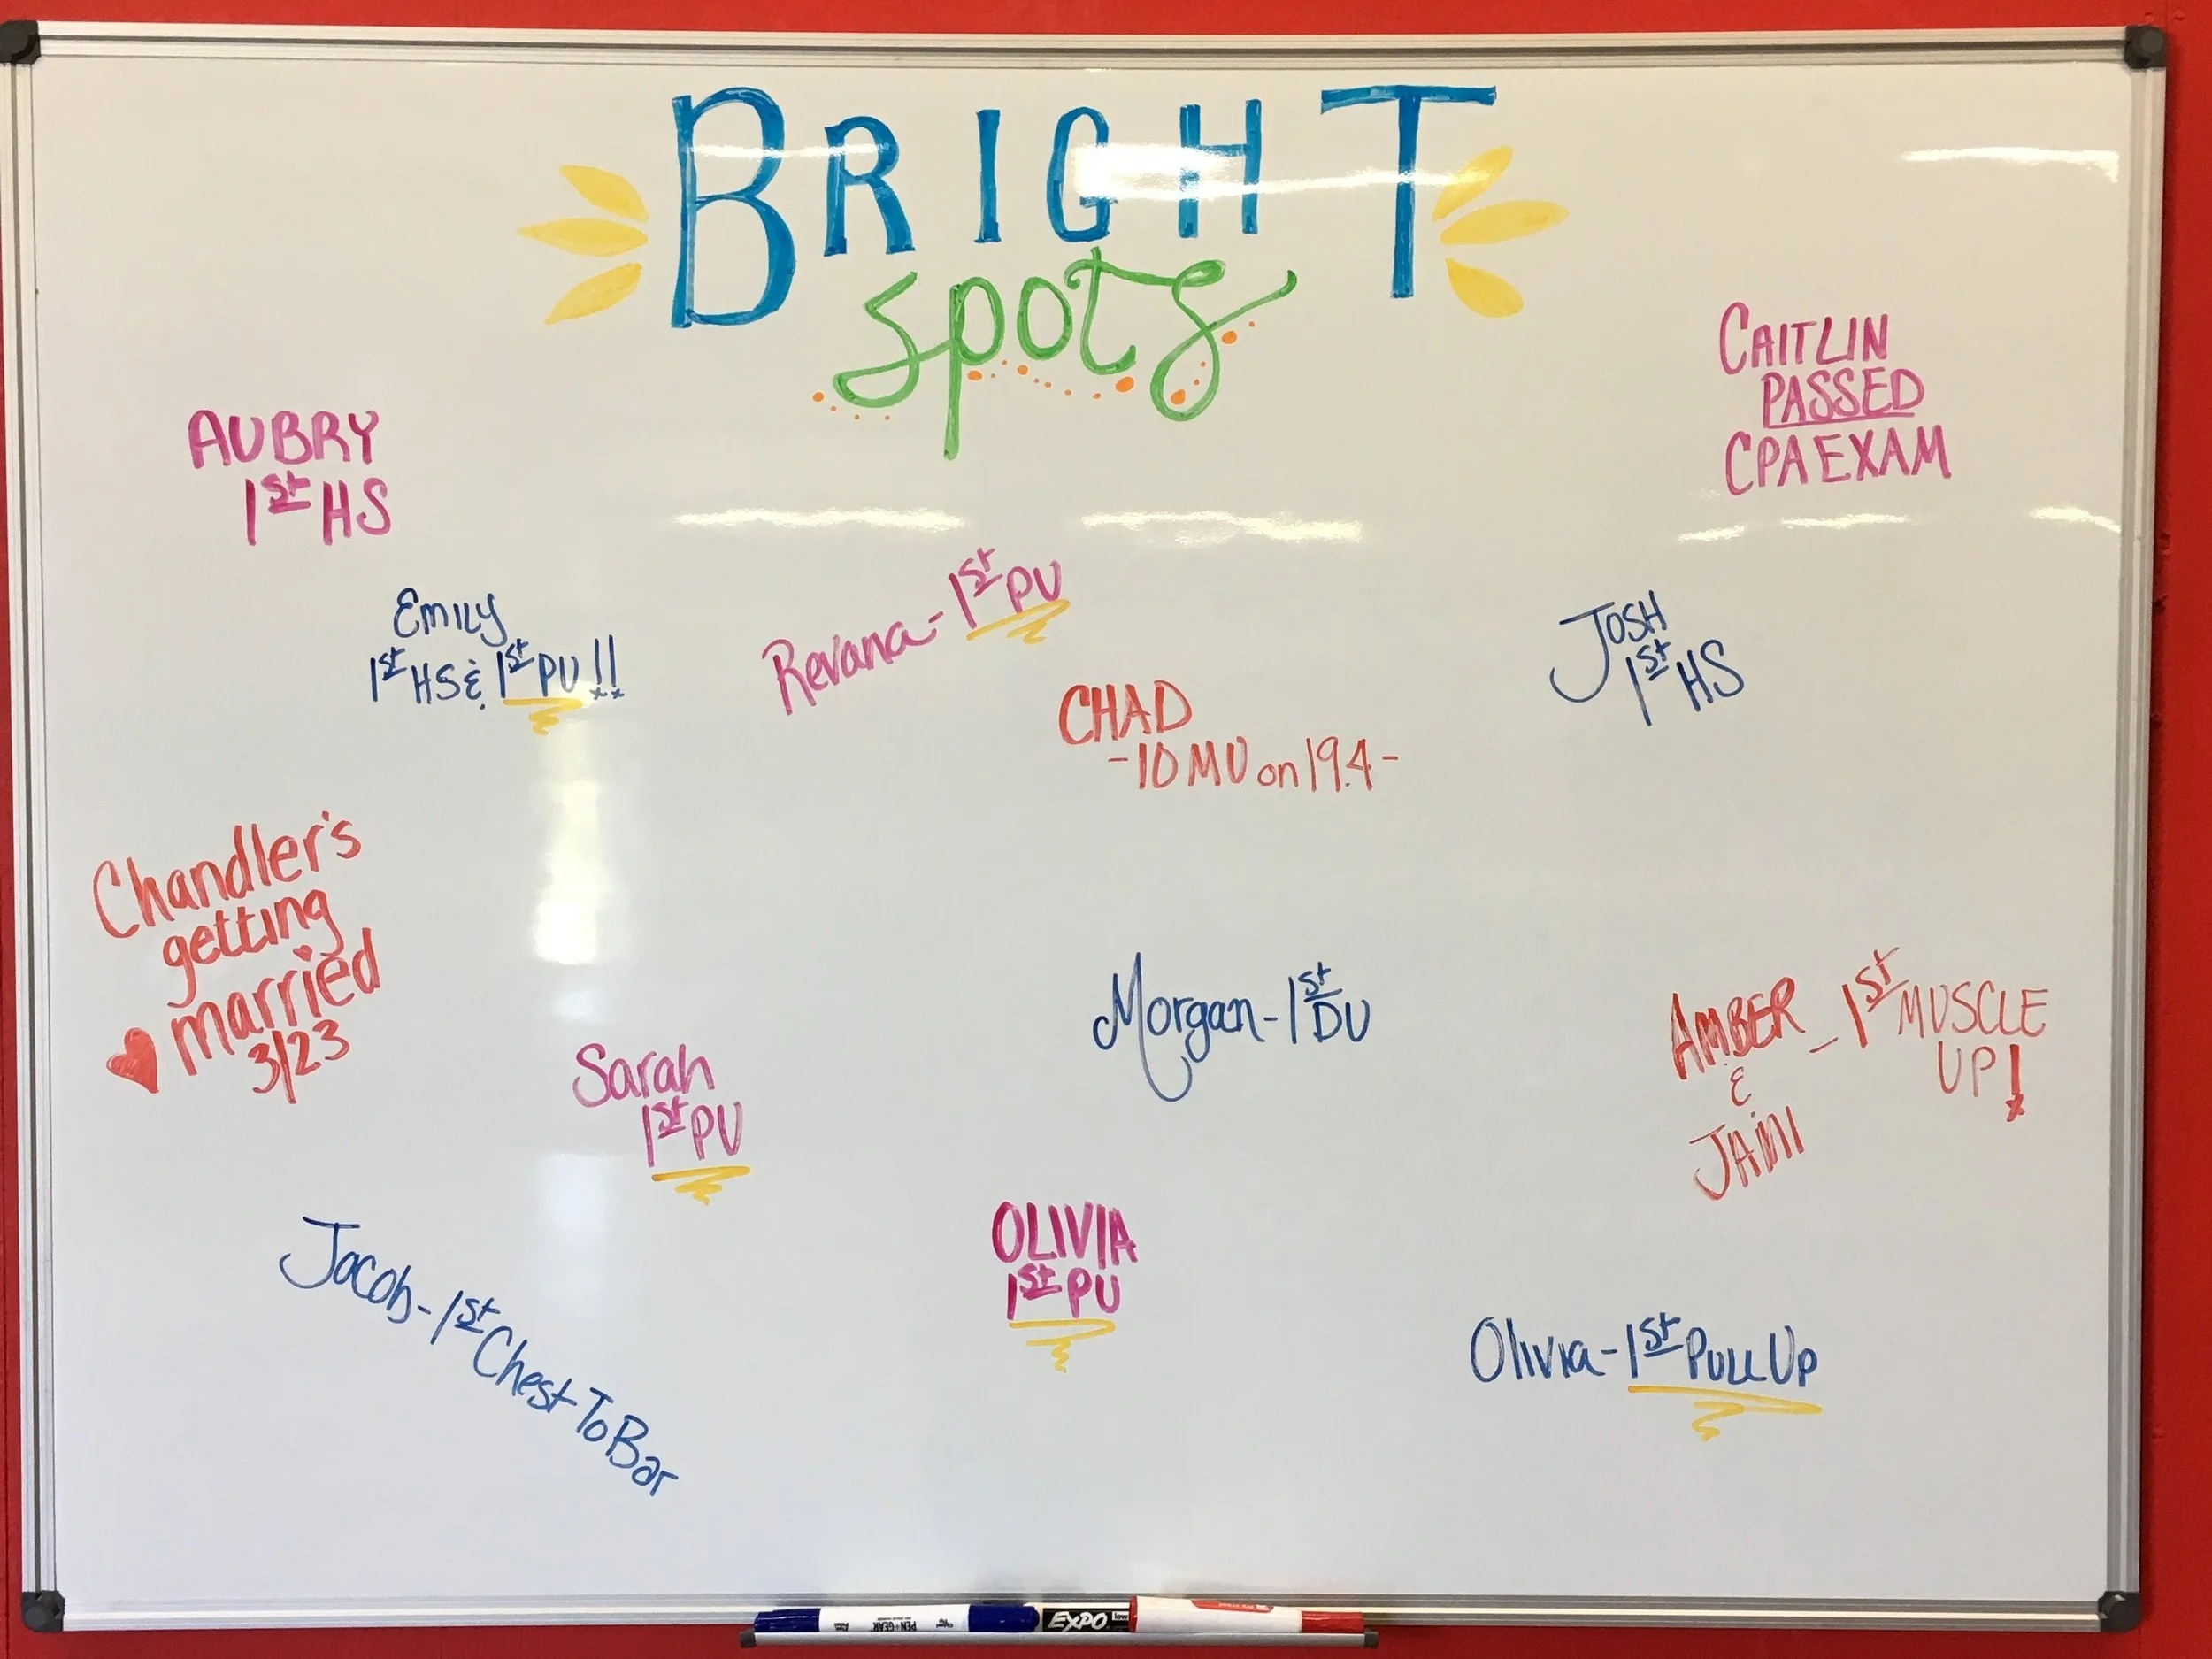 BRIGHT
spots
CAITLIN
PASSED
CPA EXAM
AUBRY
1st HS
Emily
1st HS & 1st PU!!
Revana - 1st PU
JOSH
1st HS
CHAD
-10 MU on 19.4-
Chandler's
getting
married
3/23
Morgan - 1st DU
AMBER - 1st MUSCLE
UP!
&
JAIMI
Sarah
1st PU
OLIVIA
1st PU
Jacob - 1st Chest To Bar
Olivia - 1st Pull Up
PEN+GEAR
EXPO
low